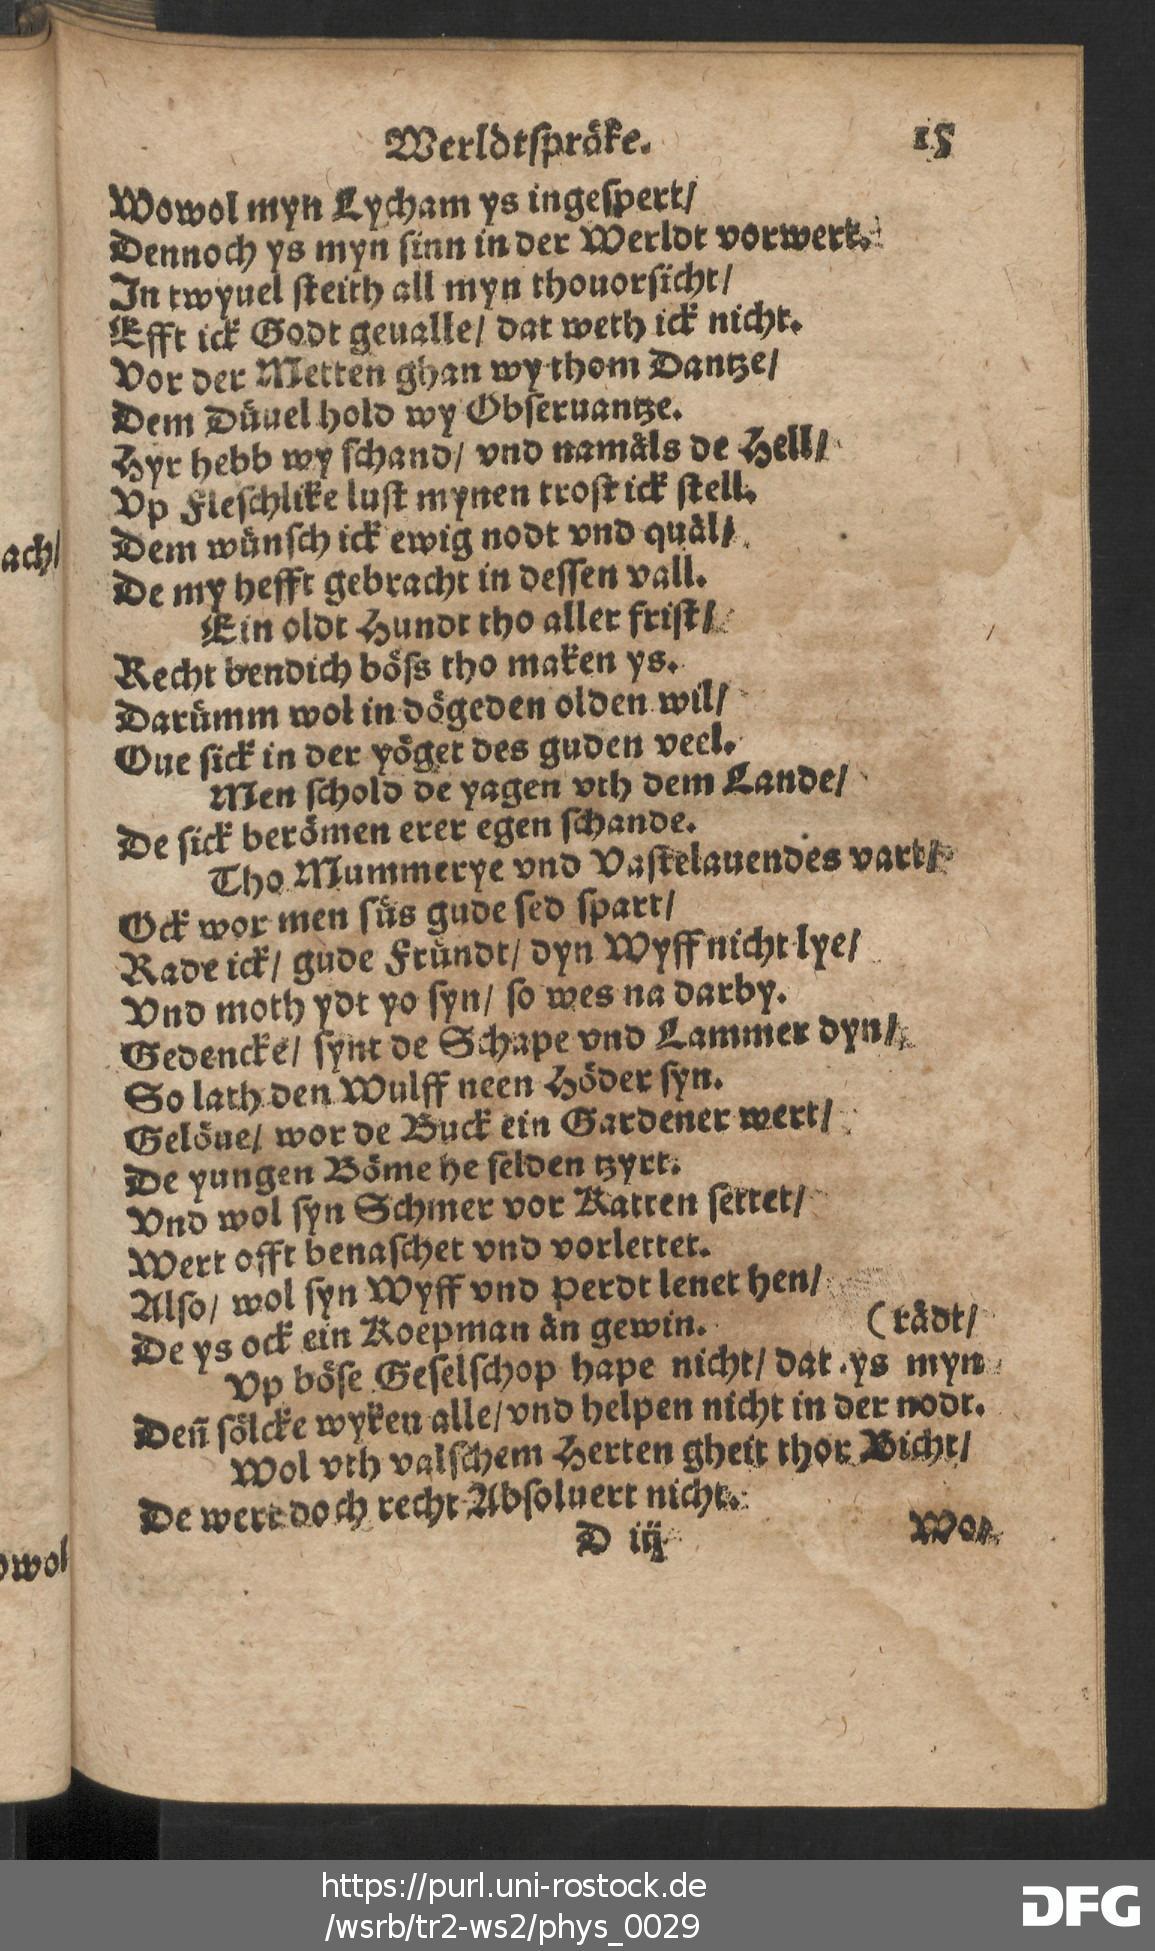 Werldtspråke. 15
Wowol myn Lycham ys ingespert/
Dennoch ys myn sinn in der Werldt vorwert.
In twyuel steith all myn thouorsicht/
Efft ick Godt geualle/ dat weth ick nicht.
Vor der Metten ghan wy thom Dantze/
Dem Düuel hold wy Obseruantze.
Hyr hebb wy schand/ vnd namåls de Hell/
Vp Fleschlike lust mynen trost ick stell.
Dem wünsch ick ewig nodt vnd quål/
De my hefft gebracht in dessen vall.
Ein oldt Hundt tho aller frist/
Recht bendich böss tho maken ys.
Darümm wol in dögeden olden wil/
Oue sick in der yöget des guden veel.
Men schold de yagen vth dem Lande/
De sick berömen erer egen schande.
Tho Mummerye vnd Vastelauendes vart/
Ock wor men süs gude sed spart/
Rade ick/ gude Fründt/ dyn Wyff nicht lye/
Vnd moth ydt yo syn/ so wes na darby.
Gedencke/ synt de Schape vnd Lammer dyn/
So lath den Wulff neen Höder syn.
Gelöue/ wor de Buck ein Gardener wert/
De yungen Böme he selden tzyrt.
Vnd wol syn Schmer vor Katten settet/
Wert offt benaschet vnd vorlettet.
Also/ wol syn Wyff vnd Perdt lenet hen/
De ys ock ein Koepman ån gewin. (rådt/
Vp böse Geselschop hape nicht/ dat ys myn
Deñ sölcke wyken alle/ vnd helpen nicht in der nodt.
Wol vth valschem Herten gheit thor Bicht/
De wert doch recht Absoluert nicht.
D iij Wol
ach/
owol
https://purl.uni-rostock.de
/wsrb/tr2-ws2/phys_0029
DFG